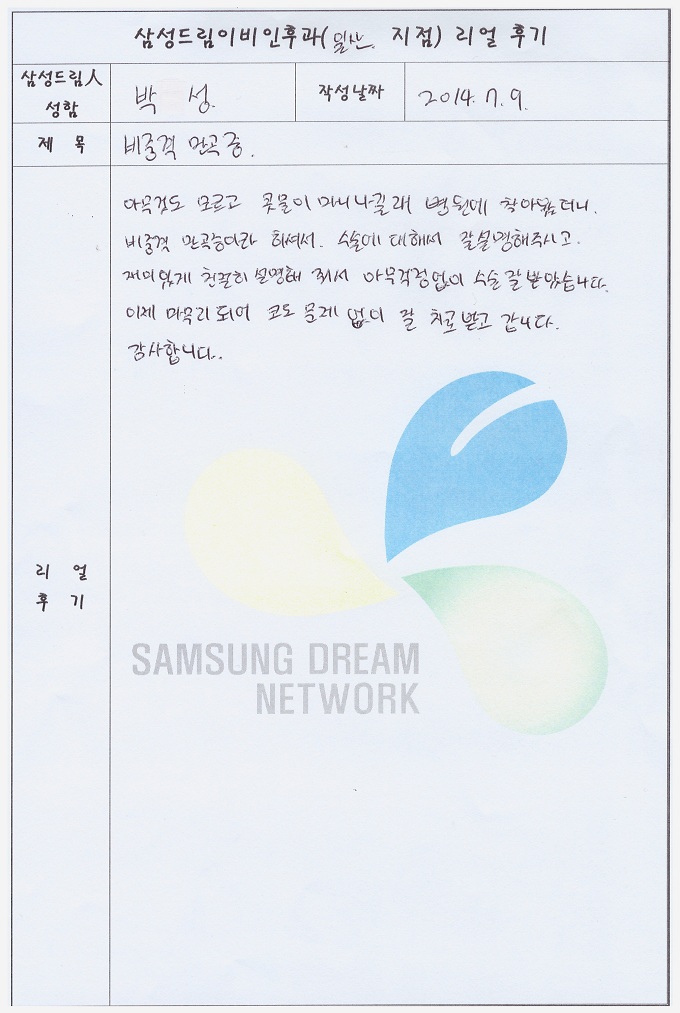 삼성드림이비인후과(일산 지점) 리얼 후기
삼성드림人
성함
박 성
작성날짜
2014. 7. 9.
제 목
비중격 만곡증.
아무것도 모르고 콧물이 마니 나길래 병원에 찾아왔더니.
비중격 만곡증이라 하셔서. 수술에 대해서 잘설명해주시고.
재미있게 친절히 설명해 줘서 아무걱정없이 수술 잘 받았습니다.
이제 마무리 되어 코도 문제 없이 잘 치료받고 갑니다.
감사합니다.
리 얼
후 기
SAMSUNG DREAM
NETWORK